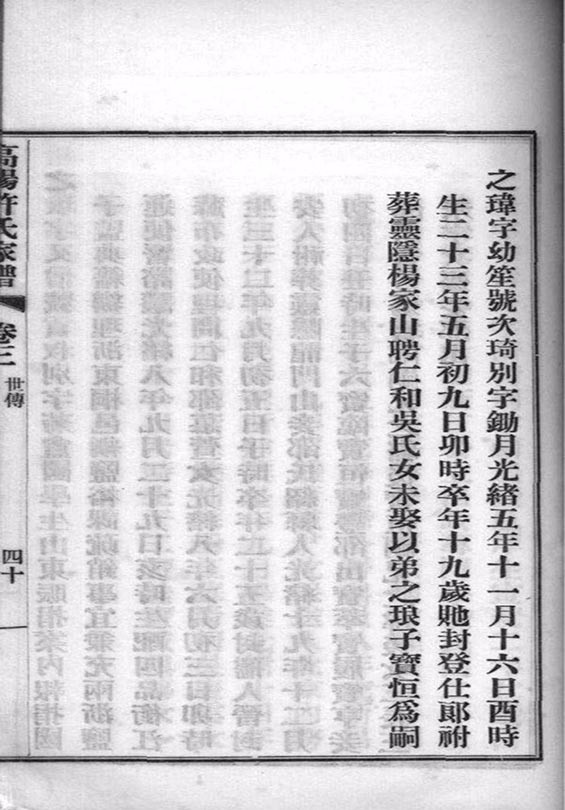 之瑋字幼笙號次琦別字鋤月光緒五年十一月十六日酉時
生二十三年五月初九日卯時卒年十九歲貤封登仕郎祔
葬靈隱楊家山聘仁和吳氏女未娶以弟之琅子寶恒爲嗣
高陽許氏家譜
卷三
世傳
四十